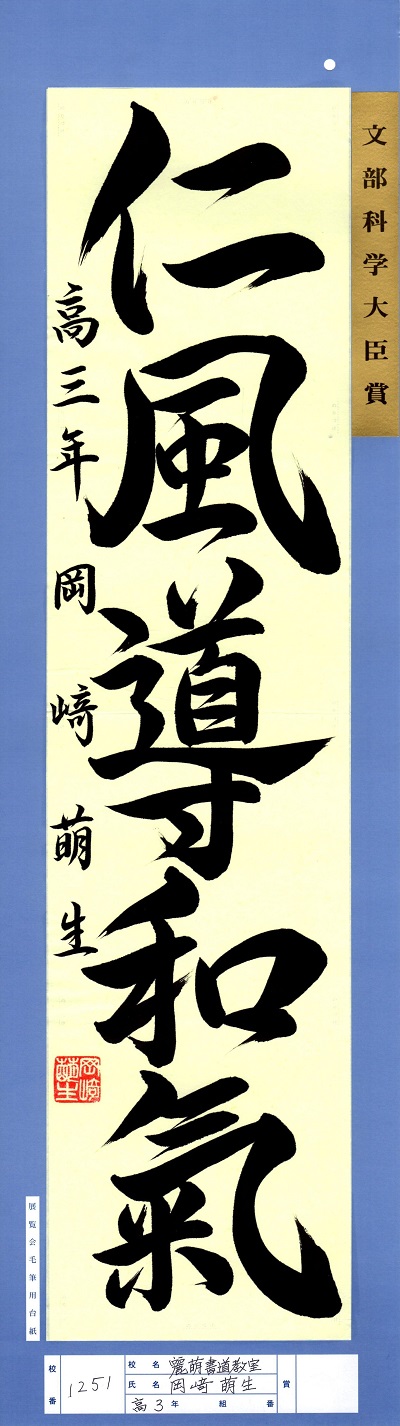 文部科学大臣賞
仁風導和氣
高三年 岡﨑萌生
岡﨑萌生
展覧会毛筆用台紙
校番 1251
校名 麗萌書道教室
氏名 岡﨑萌生
高3年 組 番
賞